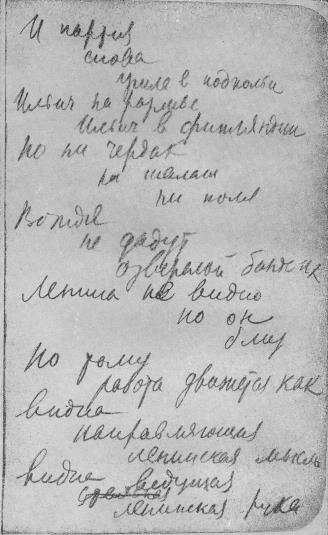 И партия
снова
ушла в подполье
Ильич на разливе
Ильич в финляндии
Но ни чердак
ни шалаш
ни поле
Вождя
не дадут
озверелой банде их
Ленина не видно
но он
близ
По тому
работа движется как
видна
направляющая
ленинская мысль
видна ведущая
ленинская рука